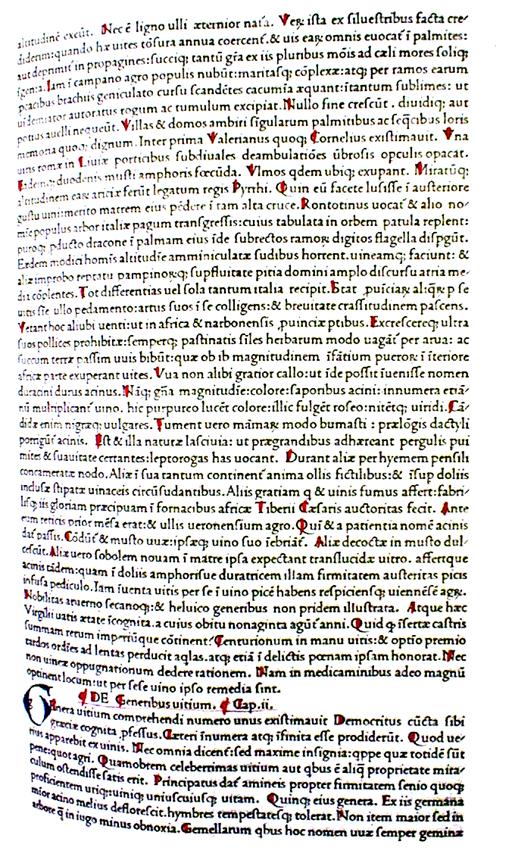 altitudinē exeūt. Nec ē ligno ulli æternior natā. Veȝ ista ex siluestribus facta cre
diderim: quando hæ uites tōsura annua coercent̄. & uis eaꝝ omnis euocat̄ ī palmites:
aut deprimit̄ in propagines: succiq; tantū grā ex iis pluribus mōis ad cæli mores soliq;
īgenia. Iam ī campano agro populis nubūt: maritasq; cōplexæ: atq; per ramos earum
pcacibus brachiis geniculato cursu scandētes cacumīa æquant: ītantum sublimes: ut
uīdemiator autoratus rogum ac tumulum excipiat. Nullo fine crescūt. diuidiq; aut
potius auelli nequeūt. Villas & domos ambiri sīgularum palmitibus ac seq̄cibus loris
memoria quoq; dignum. Inter prima Valerianus quoq; Cornelius existimauit. Vna
uitis romæ in Liuiæ porticibus subdiuales deambulatiōes ūbrosis opculis opacat.
Eadem duodenis musti amphoris fœcūda. Vlmos qdem ubiq; exupant. Miratūq;
altitudinem eaꝝ aricīæ ferūt legatum regis Pyrrhi. Cyneā facete lusisse ī austeriore
gustu uini: merito matrem eius pēdere ī ram alta cruce. Rontotinus uocat̄ & alio no
mīe populus arbor italiæ padum transgressis: cuius tabulata in orbem patula replent:
puroq; pducto dracone ī palmam eius īde subrectos ramoꝝ digitos flagella dispgūt.
Eedem modici homīs altitudīe amminiculatæ sudibus horrent. uineamq; faciunt: &
aliæ improbo reptatu pampinoꝝq; supfluitate pitia domini amplo discursu atria me
dia cōplentes. Tot differentias uel sola tantum italia recipit. Stat puīciaꝝ aliq̄ꝝ p se
uitis sīe ullo pedamento: artus suos ī se colligens: & breuitate crassitudinem pascens.
Vetant hoc aliubi uenti: ut in africa & narbonensis puinciæ ptibus. Excrescereq; ultra
suos pollices prohibitæ: sempq; pastinatis similes herbarum modo uagāt̄ per arua: ac
succum terræ passim uuis bibūt: quæ ob ib magnitudinem īfātium pueroꝝ ī īteriore
africæ parte exuperant uites. Vua non alibi gratior callo: ut īde possit īuenisse nomen
duracini durus acinus. Nāq; gn̄a magnitudīe: colore: saporibus acini: innumera etiā
nū multiplicant̄ uino. hic purpureo lucēt colore: illic fulgēt roseo: nitētq; uiridi. Cā
didæ enim nigræq; uulgares. Tument uero māmaꝝ modo bumasti: prælōgis dactyli
porrigūt̄ acinis. Est & illa naturæ lasciuia: ut prægrandibus adhæreant pergulis pui
mites & suauitate certantes: leptorogas has uocant. Durant aliæ per hyemem pensili
concameratæ nodo. Aliæ ī sua tantum continent̄ anima ollis fictilibus: & īsup doliis
inclusæ stipatæ uinaceis circūsudantibus. Aliis gratiam q & uinis fumus affert: fabri
lisq; iis gloriam præcipuam ī fornacibus africæ Tiberii Cæsaris auctoritas fecit. Ante
eum reticis prior mēsa erat: & ullis ueronensium agro. Qui & a patientia nomē acinis
dat̄ passis. Cōdūt̄ & musto uuæ: ipsæq; uino suo īebriāt̄. Aliæ decoctæ in musto dul
cescūt. Aliæ uero sobolem nouam ī matre ipsa expectant translucidæ uitro. affertque
acinis ēadem: quam ī doliis amphorisue duratricem illam firmitatem austeritas picis
infusa pediculo. Iam īuenta uitis per se ī uino picē habens respiciensq; uiennēsē agꝝ.
Nobilitas aruerno secanoq; & heluico generibus non pridem illustrata. Atque hæc
Virgilii uatis ætate īcognita. a cuius obitu nonaginta agūt̄ anni. Quid q īsertæ castris
summam rerum imperiūque cōtinent? Centurionum in manu uitis: & optio premio
tardos ordīes ad lentas perducit aq̄las. atq; etiā ī delictis pœnam ipsam honorat. Nec
non uineæ oppugnationum dedere rationem. Nam in medicaminibus adeo magnū
optinent locum: ut per sese uino ipso remedia sint.
¶ DE Generibus uitium. ¶ Cap. ii.
Genera uitium comprehendi numero unus existimauit Democritus cūcta sibi
græciæ cognita pfessus. Cæteri īnumera atq; īfinita esse prodiderūt. Quod ue
rius apparebit ex uinis. Nec omnia dicent̄: sed maxime insignia: qppe quæ totidē sūt
pene: quot agri. Quamobrem celeberrimas uitium aut qbus ē aliq̄ proprietate mita
culum ostendisse satis erit. Principatus dat̄ amineis propter firmitatem senio quoq;
proficientem utiq; uiniq; uniuscuiusq; uitam. Quinq; eius genera. Ex iis germana
mior acino melius deflorescit. hymbres tempestatesq; tolerat. Non item maior sed in
arbore q̄ in iugo minus obnoxia. Gemellarum qbus hoc nomen uuæ semper geminæ